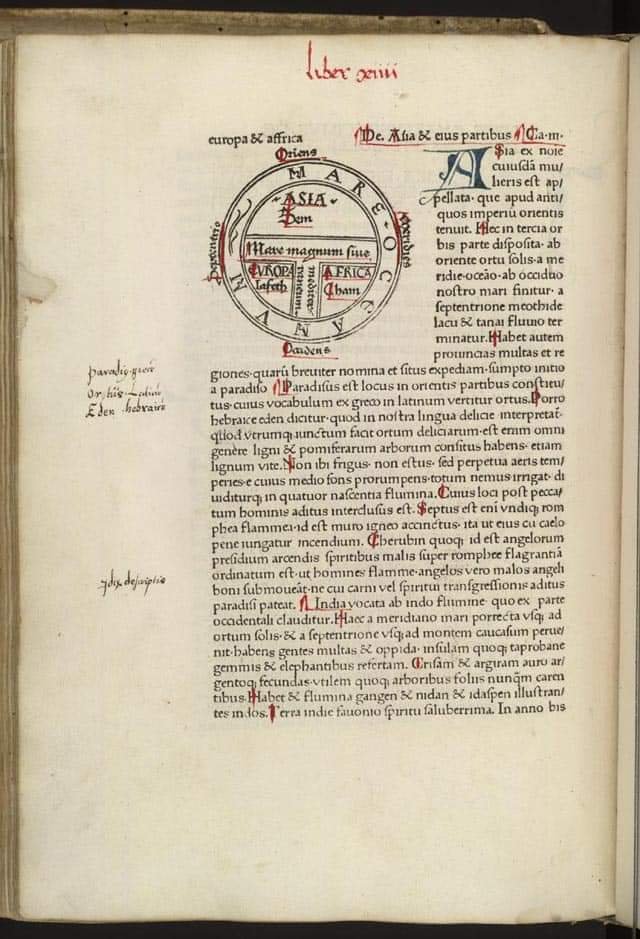 Liber xiiii
europa & affrica
De. Asia & eius partibus Ca·m·
Oriens
MARE OCEANVM
Septentrio
Meridies
ASIA
Sem
Mare magnum siue
EVROPA
Iafeth
mediter
raneum
AFRICA
Cham
Occidens
ASia ex noie
cuiusdā mu/
lieris est ap/
pellata· que apud anti/
quos imperiū orientis
tenuit. Hec in tercia or
bis parte disposita· ab
oriente ortu solis·a me
ridie·oceāo·ab occiduo
nostro mari finitur· a
septentrione meothide
lacu & tanai fluuio ter
minatur. Habet autem
prouincias multas et re
giones·quarū breuiter nomina et situs expediam·sumpto initio
a paradiso Paradisus est locus in orientis partibus constitu/
tus·cuius vocabulum ex greco in latinum vertitur ortus. Porro
hebraice eden dicitur·quod in nostra lingua delicie interpretat̄·
quod vtrumqꝫ iunctum facit ortum deliciarum·est enim omni
genere ligni & pomiferarum arborum consitus habens· etiam
lignum vite. Non ibi frigus· non estus· sed perpetua aeris tem/
peries·e cuius medio fons prorumpens·totum nemus irrigat· di
uiditurqꝫ in quatuor nascentia flumina. Cuius loci post pecca/
tum hominis aditus interclusus est. Septus est enī vndiqꝫ rom
phea flammea·id est muro igneo accinctus· ita ut eius cū caelo
pene iungatur incendium. Cherubin quoqꝫ id est angelorum
presidium arcendis spiritibus malis super romphee flagrantiā
ordinatum est·ut homines flamme·angelos vero malos angeli
boni submoueāt·ne cui carni vel spiritui transgressionis aditus
paradisi pateat. India vocata ab indo flumine· quo ex parte
occidentali clauditur. Haec a meridiano mari porrecta vsqꝫ ad
ortum solis·& a septentrione vsqꝫ ad montem caucasum perue/
nit·habens gentes multas & oppida· insulam quoqꝫ taprobane
gemmis & elephantibus refertam. Crisam & argiram auro ar/
gentoqꝫ fecundas·vtilem quoqꝫ arboribus foliis nunqm̄ caren
tibus. Habet & flumina gangen & nidan & idaspen illustran/
tes indos. Terra indie fauonio spiritu saluberrima. In anno bis
Eden hebraice